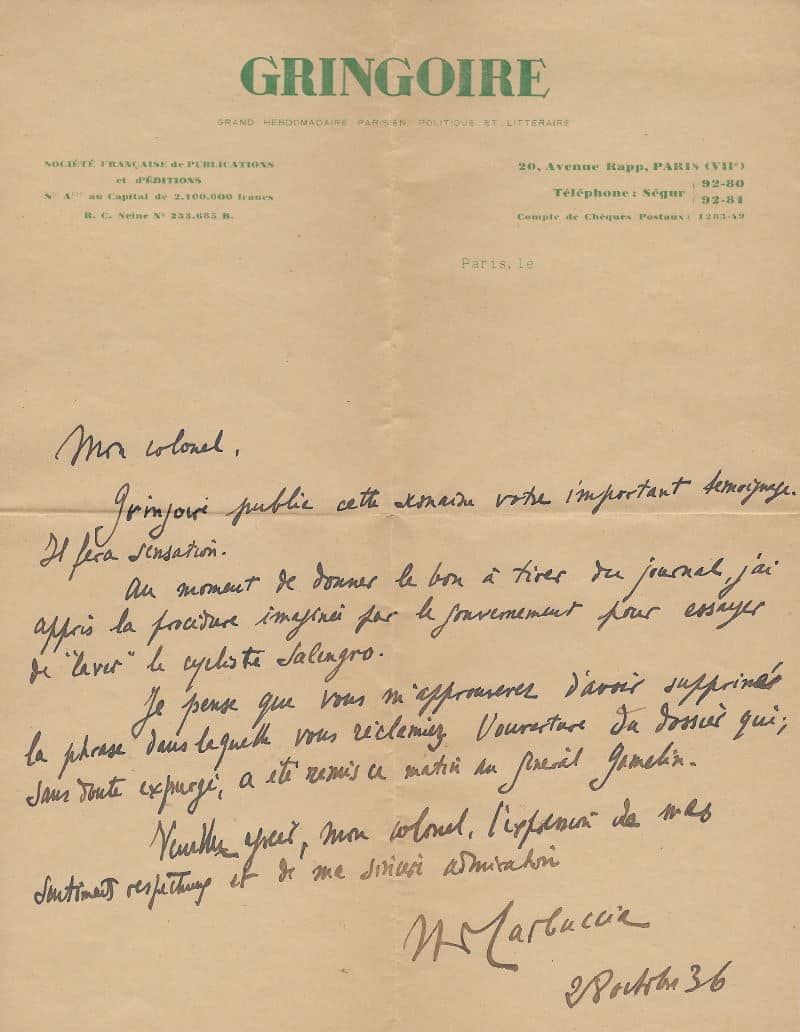 GRINGOIRE
GRAND HEBDOMADAIRE PARISIEN, POLITIQUE ET LITTÉRAIRE
SOCIÉTÉ FRANÇAISE de PUBLICATIONS
et d'ÉDITIONS
Sté Ame au Capital de 2.100.000 francs
R. C. Seine No 233.685 B.
20, Avenue Rapp, PARIS (VIIe)
Téléphone : Ségur 92-80
92-81
Compte de Chèques Postaux : 1283-49
Paris, le
Mon colonel,
Gringoire publie cette semaine votre important témoignage.
Il fera sensation.
Au moment de donner le bon à tirer du journal, j'ai
appris la procédure imaginée par le gouvernement pour essayer
de "laver" le cycliste Salengro.
Je pense que vous m'approuverez d'avoir supprimé
la phrase dans laquelle vous réclamiez l'ouverture du dossier qui,
sans doute expurgé, a été remis ce matin au général Gamelin.
Veuillez agréer, mon colonel, l'expression de mes
sentiments respectueux et de ma sincère admiration
H de Carbuccia
28 octobre 36